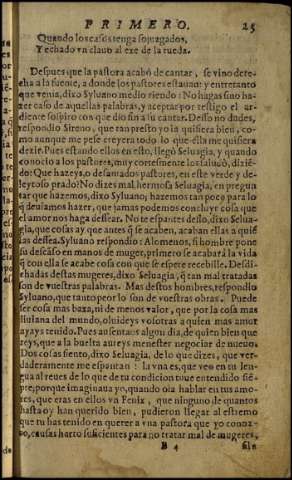 PRIMERO. 25
Quando los casos tenga sojuzgados,
Y echado vn clauo al exe de la rueda.
Despues que la pastora acabó de cantar, se vino dere-
cha a la fuente, a donde los pastores estauan: y entretanto
que venia, dixo Syluano medio riendo: No hagas sino ha-
zer caso de aquellas palabras, y aceptar por testigo el ar-
diente sospiro con que dio fin a su cantar. Desso no dudes,
respondio Sireno, que tan presto yo la quisiera bien, co-
mo aunque me pese creyera todo lo que ella me quisiera
dezir. Pues estando ellos en esto, llegó Seluagia, y quando
conocio a los pastores, muy cortesmente los saludò, dizié-
do: Que hazeys, o desamados pastores, en este verde y de-
leytoso prado? No dizes mal, hermosa Seluagia, en pregun
tar que hazemos, dixo Syluano; hazemos tan poco para lo
q̃ deuiamos hazer, que jamas podemos concluyr cosa que
el amor nos haga dessear. No te espantes desso, dixo Selua-
gia, que cosas ay que antes q̃ se acaben, acaban ellas a quié
las dessea. Syluano respondio: Alomenos, si hombre pone
su descãso en manos de muger, primero se acabará la vida
q̃ con ella se acabe cosa con que se espere recebille. Desdi-
chadas destas mugeres, dixo Seluagia, q̃ tan mal tratadas
son de vuestras palabras. Mas destos hombres, respondio
Syluano, que tanto peor lo son de vuestras obras. Puede
ser cosa mas baxa, ni de menos valor, que por la cosa mas
liuiana del mundo, oluideys vosotras a quien mas amor
ayays tenido. Pues ausentaos algun dia, de quien bien que
reys, que a la buelta aureys menester negociar de nueuo.
Dos cosas siento, dixo Seluagia, de lo que dizes, que ver-
daderamente me espantan: La vna es, que veo en tu len-
gua al reues de lo que de tu condicion tuue entendido sié-
pre, porque imaginaua yo, quando oia hablar en tus amo-
res, que eras en ellos vn Fenix, que ninguno de quantos
hasta oy han querido bien, pudieron llegar al estremo
que tu has tenido en querer a vna pastora que yo conoz-
co, causas harto suficientes para no tratar mal de mugeres,
B 4